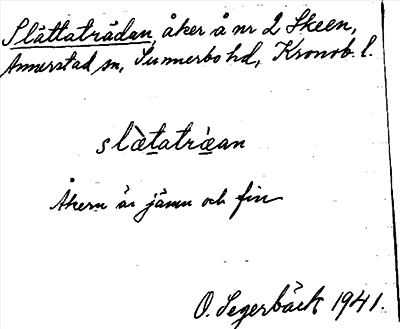 Slättaträdan, åker å nr 2 Skeen,
Annerstad sn, Sunnerbo hd, Kronob. l.
slàt̲atræ̲̀an
Åkern är jämn och fin
O. Segerbäck 1941.